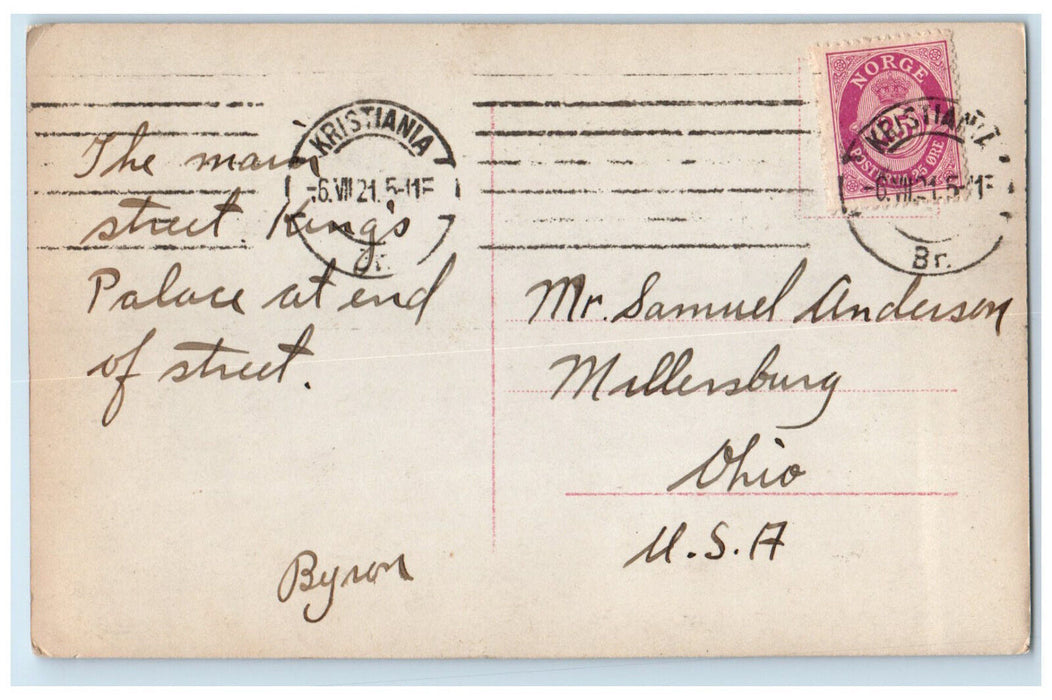 The main
street. King's
Palace at end
of street.
Byron
KRISTIANIA
-6.VII.21.5-11F
Br.
NORGE
25
POSTFRIM. 25 ØRE
KRISTIANIA
-6.VII.21.5-11F
Br.
Mr. Samuel Anderson
Millersburg
Ohio
U.S.A